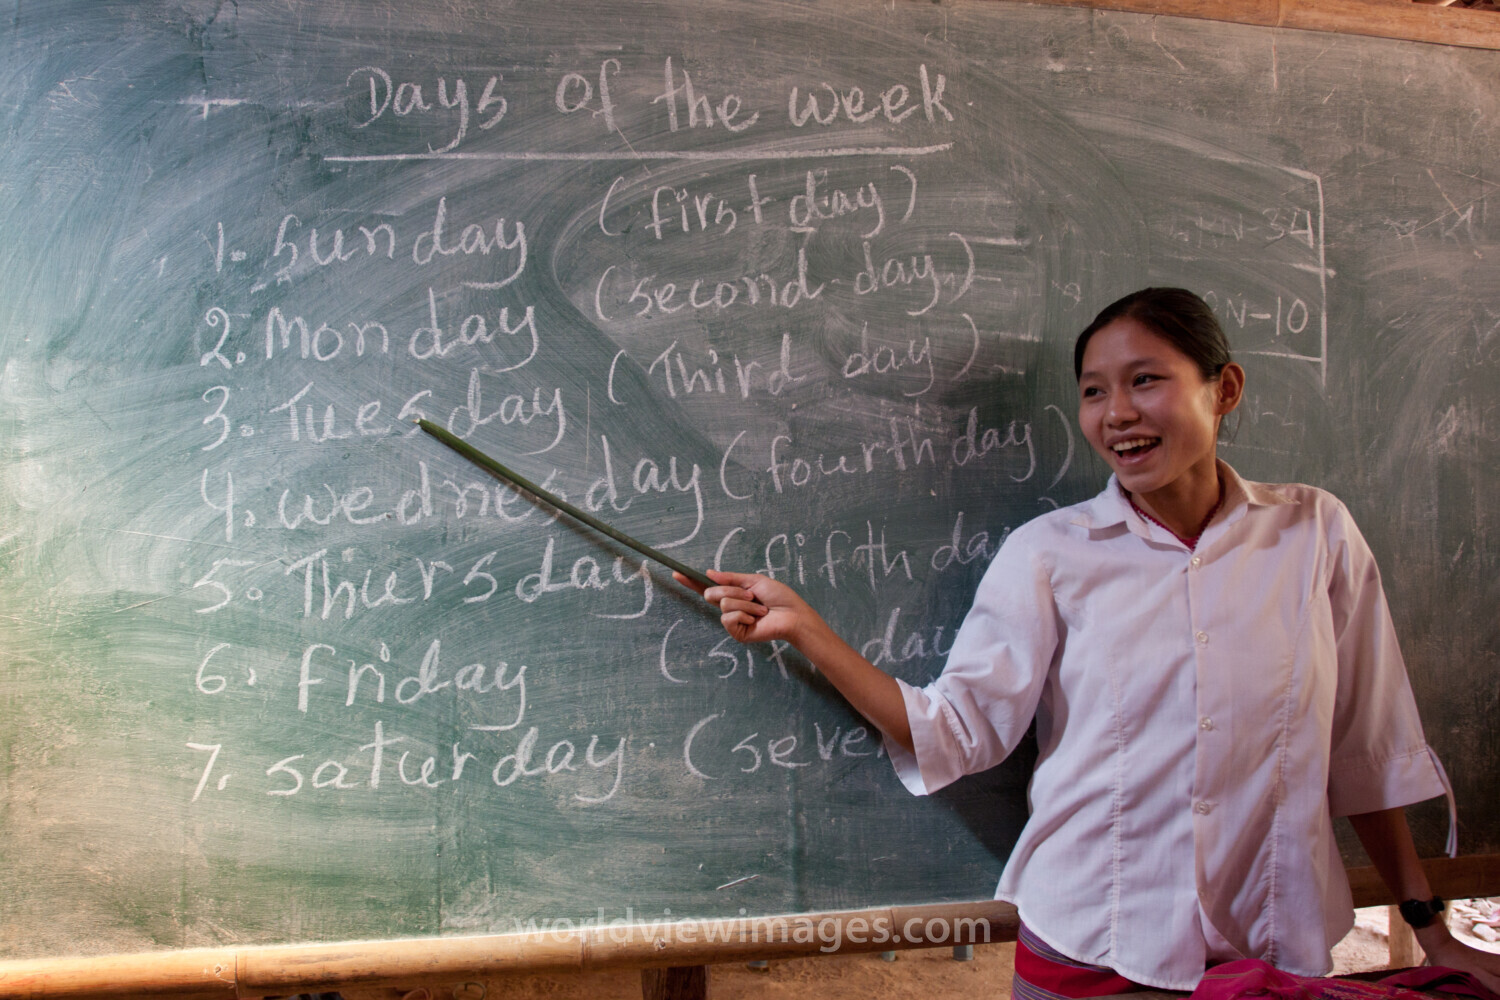 Days of the week
1. Sunday (first day)
2. Monday (second day)
3. Tuesday (Third day)
4. wednesday (fourth day)
5. Thursday (fifth day)
6. friday
7. saturday (seve
34
N-10
worldviewimages.com